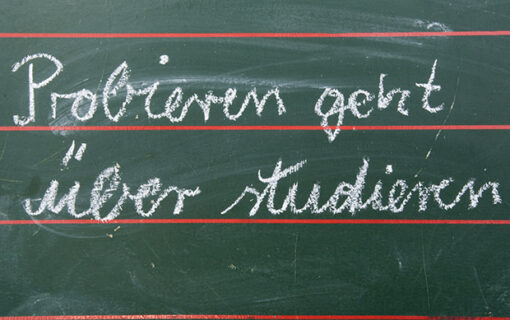 Probieren geht
über studieren